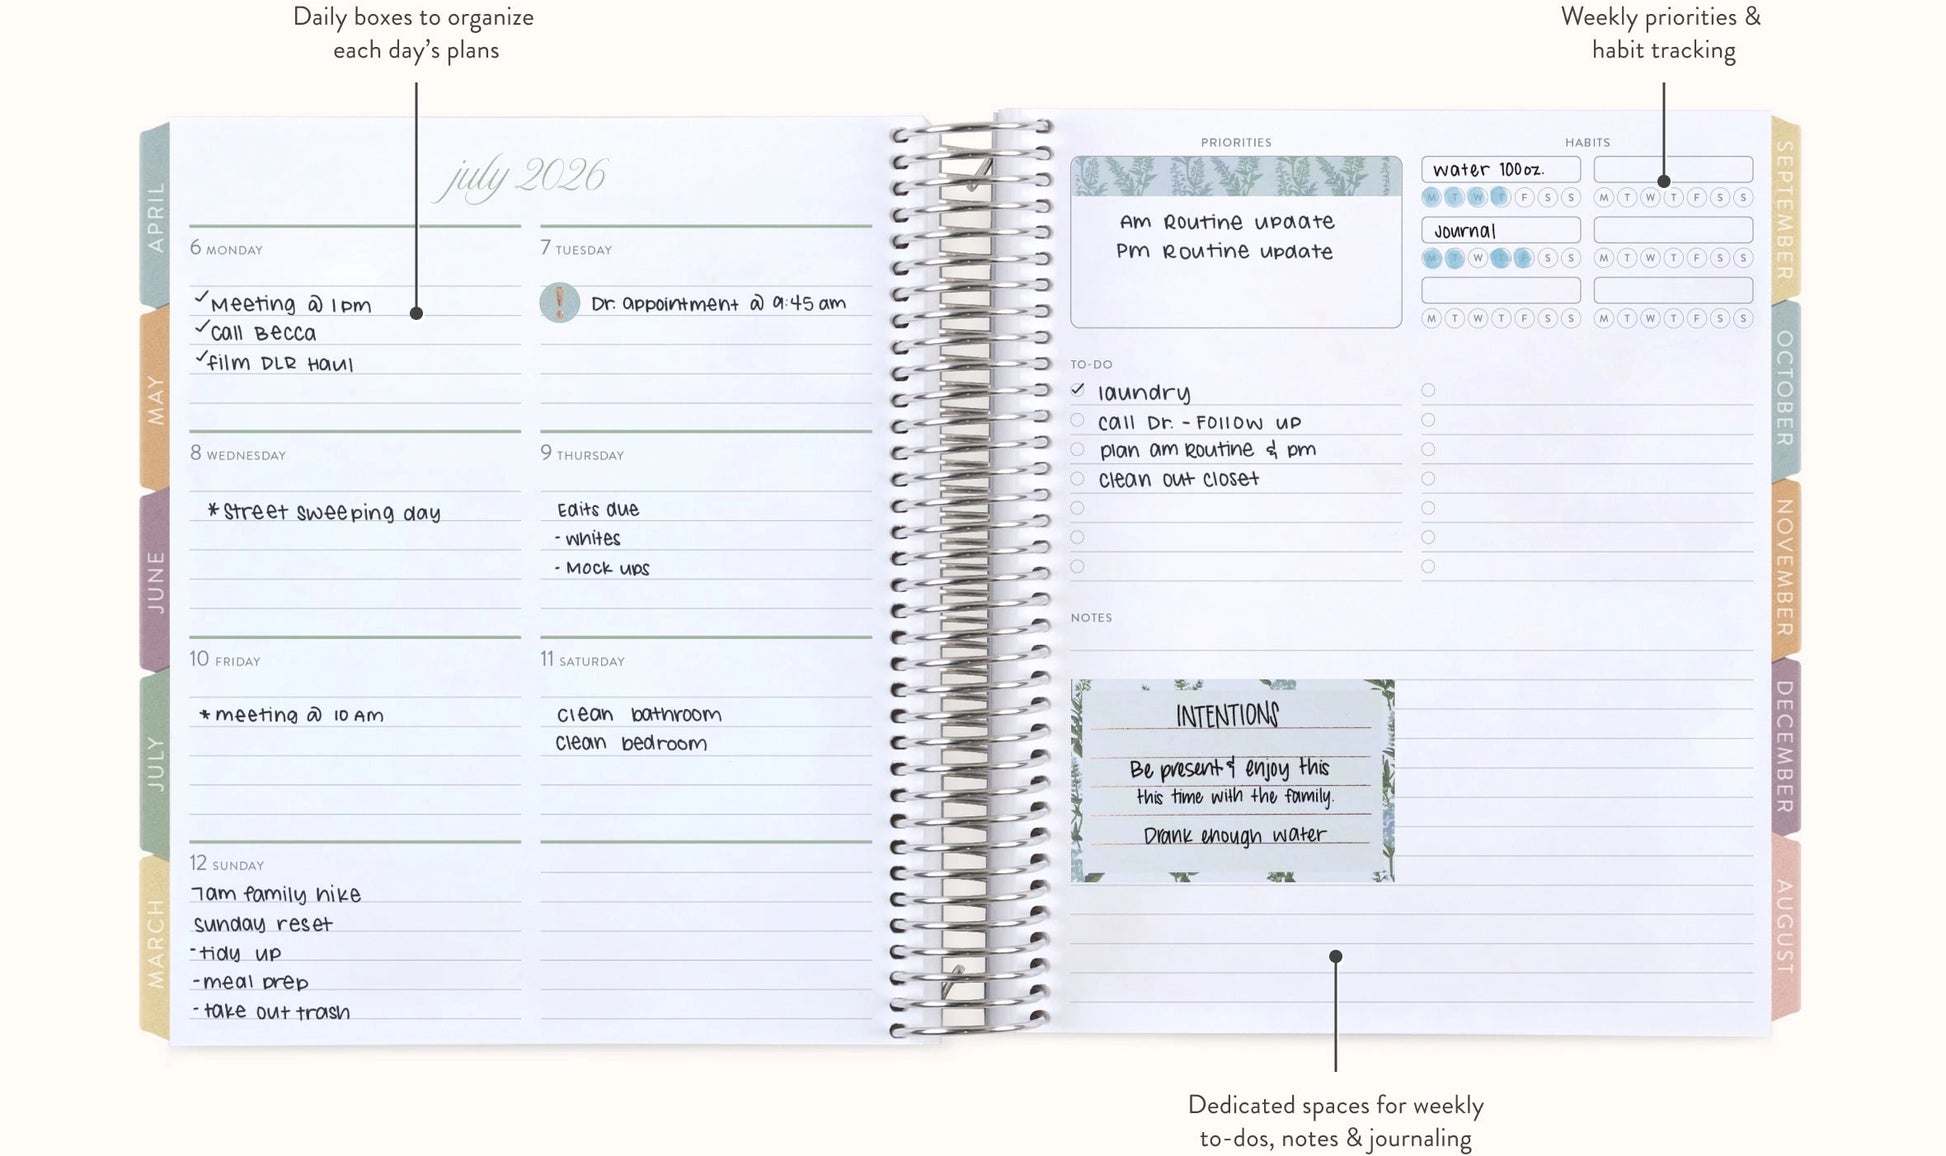 Daily boxes to organize
each day's plans
Weekly priorities &
habit tracking
APRIL
MAY
JUNE
JULY
MARCH
july 2026
6 MONDAY
✓Meeting @ 1pm
✓Call Becca
✓film DLR Haul
7 TUESDAY
! Dr. appointment @ 9:45 am
8 WEDNESDAY
* Street sweeping day
9 THURSDAY
Edits due
- whites
- Mock ups
10 FRIDAY
* meeting @ 10 AM
11 SATURDAY
clean bathroom
clean bedroom
12 SUNDAY
7am family hike
sunday reset
- tidy up
- meal prep
- take out trash
PRIORITIES
Am Routine update
Pm Routine update
HABITS
water 100oz.
M T W T F S S
M T W T F S S
Journal
M T W T F S S
M T W T F S S
M T W T F S S
M T W T F S S
TO-DO
✓ laundry
call Dr. - Follow up
plan am Routine & pm
clean out closet
NOTES
INTENTIONS
Be present & enjoy this
this time with the family.
Drank enough water
SEPTEMBER
OCTOBER
NOVEMBER
DECEMBER
AUGUST
Dedicated spaces for weekly
to-dos, notes & journaling